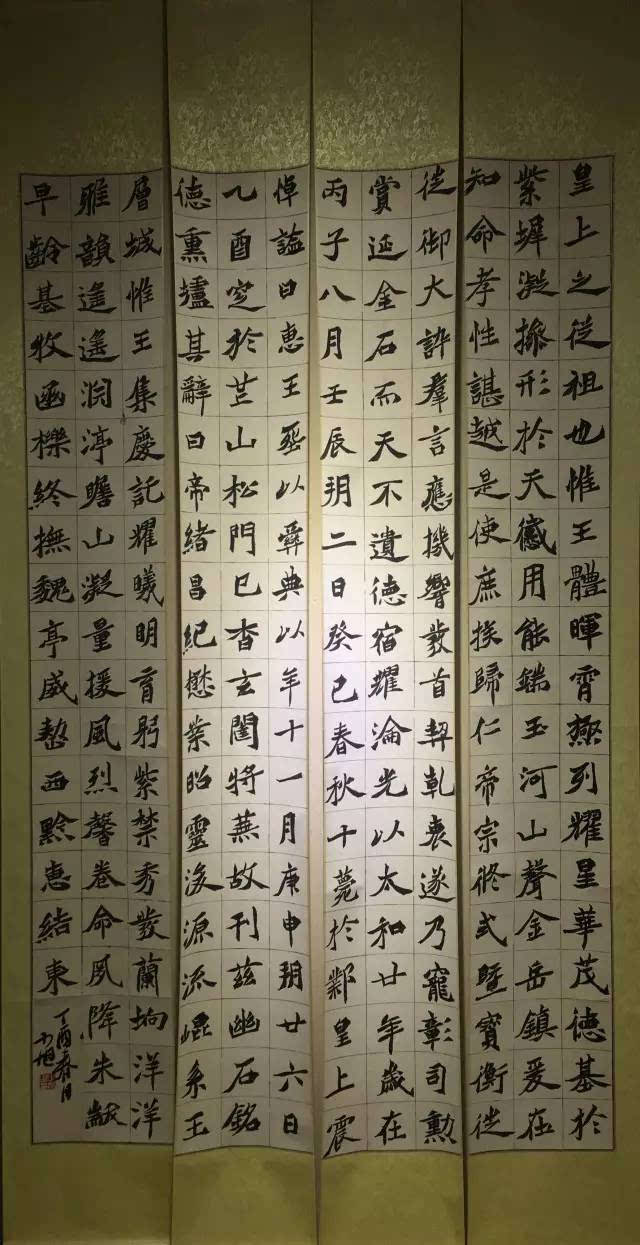 皇上之從祖也惟王體暉霄極列耀星華茂德基於
紫墀凝操形於天感用能端玉河山聲金岳鎮爰在
知命孝性諶越是使庶族歸仁帝宗攸式暨寶衡徙
徙御大訊羣言應機響發首契乾衷遂乃寵彰司勳
賞延金石而天不遺德宿耀淪光以太和廿年歲在
丙子八月壬辰朔二日癸巳春秋十薨於鄴皇上震
悼謚曰惠王葬以彝典以年十一月庚申朔廿六日
乙酉窆於芒山松門已杳玄闥將蕪故刊兹幽石銘
德熏壚其辭曰帝緒昌紀懋業昭靈浚源流崐系玉
層城惟王集慶託耀曦明育躬紫禁秀發蘭坰洋洋
雅韻遥遥淵渟瞻山凝量援風烈馨卷命夙降朱黻
早齡基牧函櫟終撫魏亭威慹西黔惠結東
丁酉春月